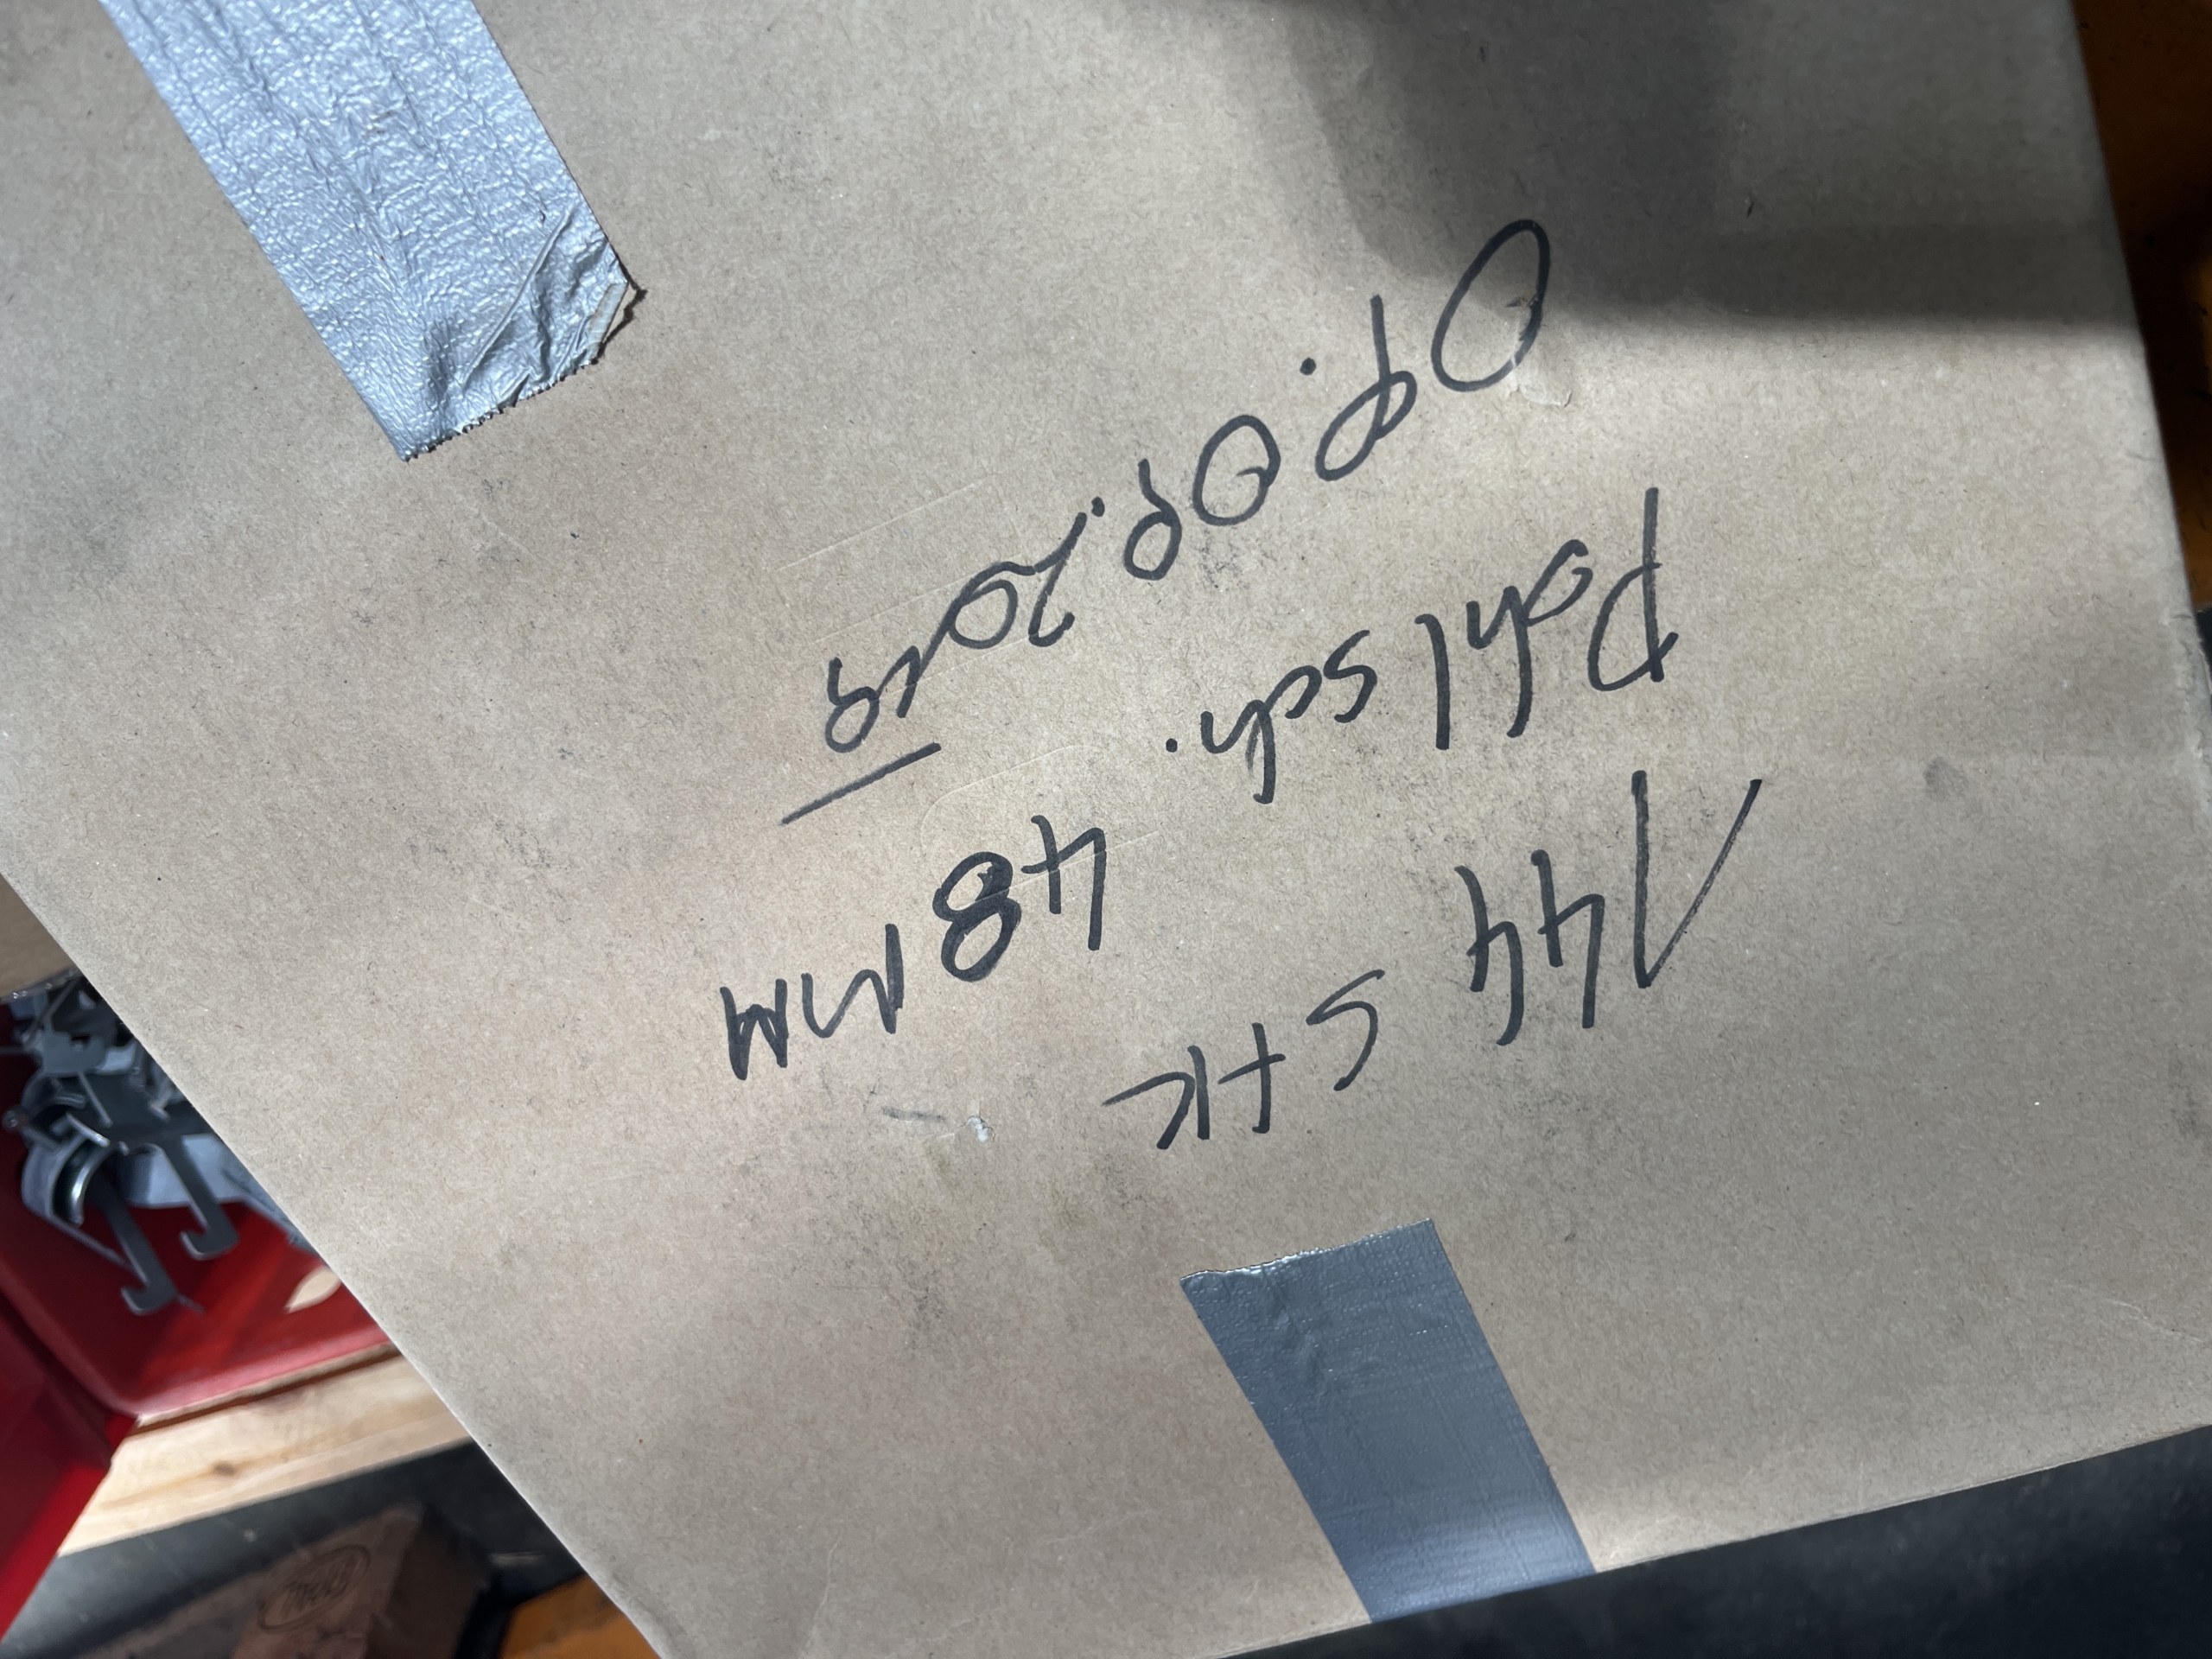 144 STK
sch. 48MM
09.09.2019